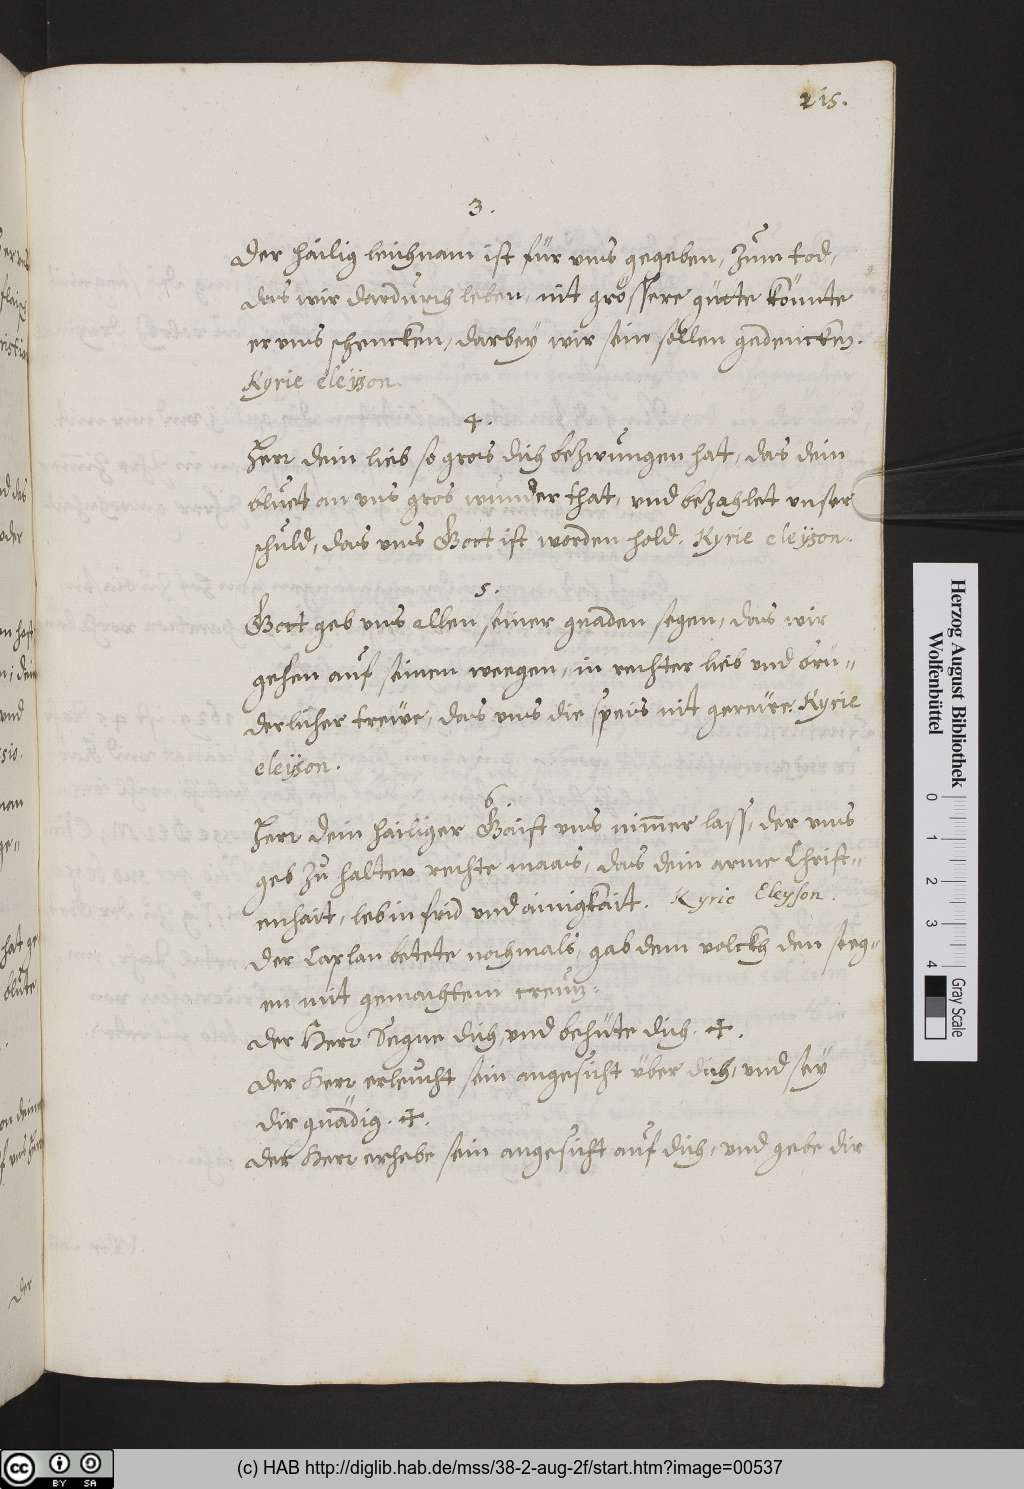 215.
3.
der hailig leichnam ist für vns gegeben, zum tod,
das wir dardurch leben, nit grössere güette könnte
er vns schencken, darbey wir sein söllen gedencken.
Kyrie eleÿson.
4.
Herr dein lieb so gros dich bezwungen hat, das dein
bluet an vns gros wunder that, vnd bezahlet vnser
schuld, das vns Gott ist worden hold. Kyrie eleÿson.
5.
Gott geb vns allen seiner gnaden segen, das wir
gehen auf seinen weegen, in rechter lieb vnd brü=
derlicher trewe, das vns die speis nit gerewe. Kyrie
eleÿson.
6.
Herr dein hailiger Gaist vns nim̄er lass, der vns
geb zu halten rechte maas, das dein arme Christ=
enhait, leb in frid vnd ainigkait. Kyrie Eleyson.
der Caplan betete nochmals, gab dem volckh den seeg=
en mit gemachtem creutz.
der Herr Segne dich, vnd behüte dich. ✠.
der Herr erleucht sein angesicht über dich, vnd seÿ
dir gnädig. ✠.
der Herr erhebe sein angesicht auf dich, vnd gebe dir
Herzog August Bibliothek
Wolfenbüttel
0 1 2 3 4
Gray Scale
(c) HAB http://diglib.hab.de/mss/38-2-aug-2f/start.htm?image=00537
cc BY SA